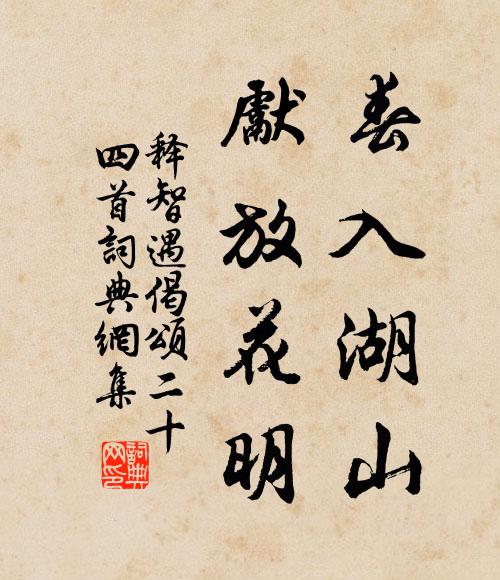 春入湖山
獻放花明
释智遇偈頌二十
四首詞典網集
詞典
网印